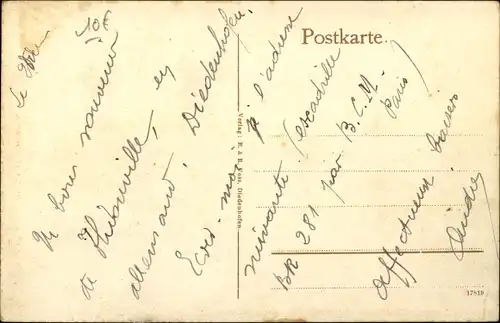 10€
Postkarte.
Un bon souvenir
de Thionville, en
allemand, Diedenhofen.
Ecris-moi à l'adresse
suivante (escadrille
BR 281 par B.C.M.
Paris)
Affectueux baisers
Verlag: R. & E. Diedenhofen.
17819